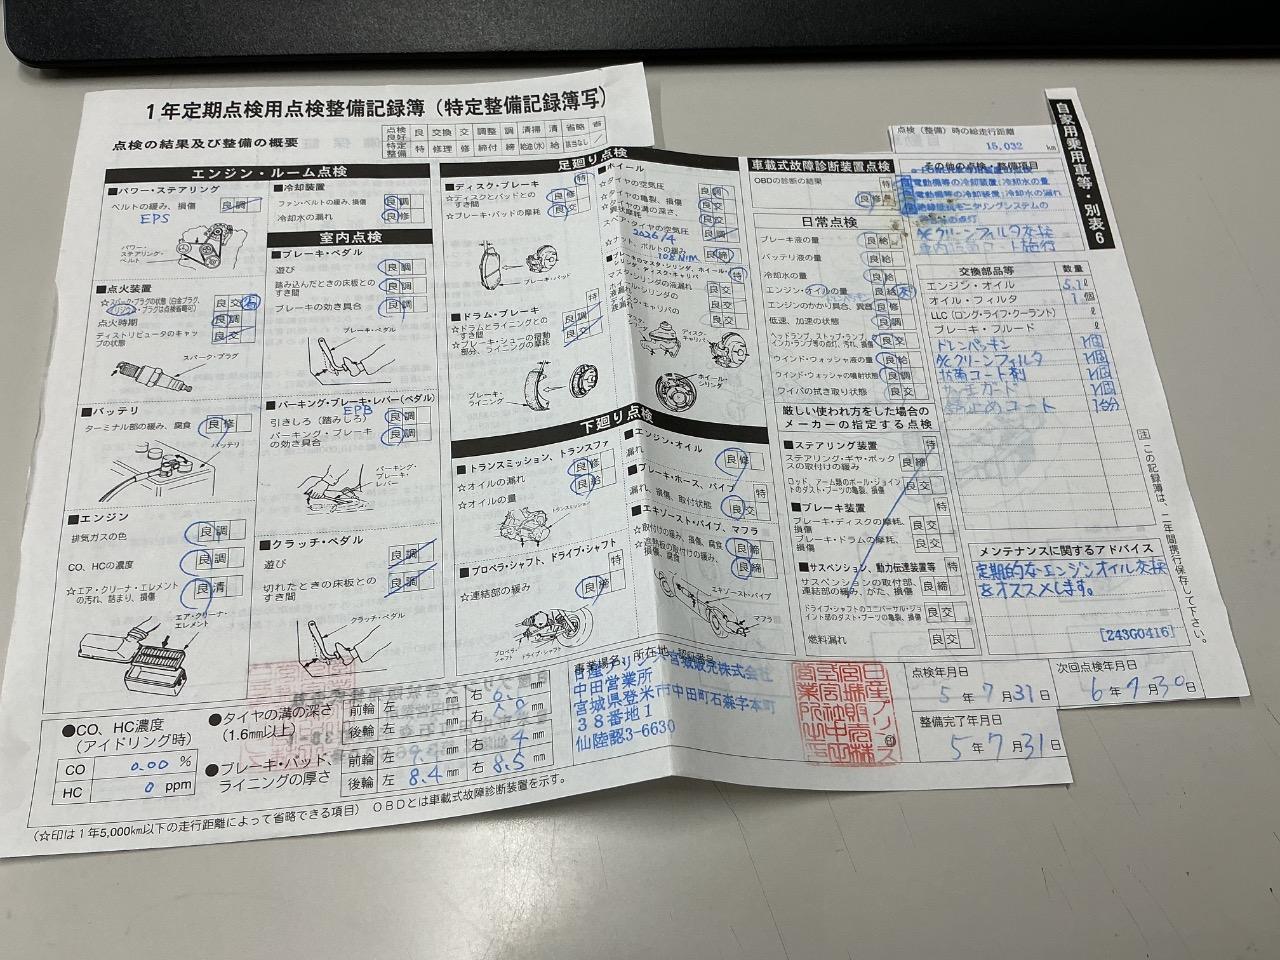 1年定期点検用点検整備記録簿(特定整備記録簿写)
点検の結果及び整備の概要
点検良好 良 交換 交 調整 調 清掃 清 省略 省
特定整備 特 修理 修 締付 締 給油(水) 給 該当なし /
エンジン・ルーム点検
■パワー・ステアリング
ベルトの緩み、損傷 良 調
EPS
パワー・ステアリング・ベルト
■点火装置
☆スパーク・プラグの状態
点火時期 良 調
ディストリビュータのキャップの状態 良 交
スパーク・プラグ
■バッテリ
ターミナル部の緩み、腐食 良 修
バッテリ
■エンジン
排気ガスの色 良 調
CO、HCの濃度 良 調
☆エア・クリーナ・エレメントの汚れ、詰まり、損傷 良 清
エア・クリーナ・エレメント
■冷却装置
ファン・ベルトの緩み、損傷 良 調
冷却水の漏れ 良 修
室内点検
■ブレーキ・ペダル
遊び 良 調
踏み込んだときの床板とのすき間 良 調
ブレーキの効き具合 良 調
ブレーキ・ペダル
■パーキング・ブレーキ・レバー(ペダル)
EPB
引きしろ(踏みしろ) 良 調
パーキング・ブレーキの効き具合 良 調
パーキング・ブレーキ・レバー
■クラッチ・ペダル
遊び 良 調
切れたときの床板とのすき間 良 調
クラッチ・ペダル
足廻り点検
■ディスク・ブレーキ 特
☆ディスクとパッドとのすき間 良 修
☆ブレーキ・パッドの摩耗 良 交
ブレーキ・パッド
■ドラム・ブレーキ 特
☆ドラムとライニングとのすき間 良 調
☆ブレーキ・シューの摺動部分、ライニングの摩耗 良 交
ブレーキ・ライニング
■ホイール
☆タイヤの空気圧 良 調
☆タイヤの亀裂、損傷 良 交
☆タイヤの溝の深さ、異状摩耗 良 交
スペア・タイヤの空気圧 良 調
2026/4
☆ナット、ボルトの緩み 良 締
108N/m
特
ディスク・キャリパ
ホイール・シリンダ
下廻り点検
■トランスミッション、トランスファ
☆オイルの漏れ 良 修
☆オイルの量 良 給
トランスミッション
■プロペラ・シャフト、ドライブ・シャフト 特
☆連結部の緩み 良 締
プロペラ・シャフト
ドライブ・シャフト
■エンジン・オイル
漏れ 良 修
■ブレーキ・ホース、パイプ 特
漏れ、損傷、取付状態 良 交
■エキゾースト・パイプ、マフラ
☆取付けの緩み、損傷、腐食 良 締
☆遮熱板の取付けの緩み、損傷、腐食 良 締
エキゾースト・パイプ
マフラ
車載式故障診断装置点検
OBDの診断の結果 特
良 修
日常点検
ブレーキ液の量 良 給
バッテリ液の量 良 給
冷却水の量 良 給
エンジン・オイルの量 良 給 交
エンジンのかかり具合、異音 良 修
低速、加速の状態 良 調
ウインド・ウォッシャ液の量 良 給
ウインド・ウォッシャの噴射状態 良 調
ワイパの拭き取り状態 良 交
厳しい使われ方をした場合の
メーカーの指定する点検
■ステアリング装置 特
ステアリング・ギヤ・ボックスの取付けの緩み 良 締
ロッド、アーム類のボール・ジョイントのダスト・ブーツの亀裂、損傷 良 交
■ブレーキ装置 特
ブレーキ・ディスクの摩耗、損傷 良 交
ブレーキ・ドラムの摩耗、損傷 良 交
■サスペンション、動力伝達装置等 特
サスペンションの取付部、連結部の緩み、がた、損傷 良 締
ドライブ・シャフトのユニバーサル・ジョイント部のダスト・ブーツの亀裂、損傷 良 交
燃料漏れ 良 交
自家用乗用車等・別表6
点検(整備)時の総走行距離
15,032 km
その他の点検・整備項目
電動機等の冷却装置:冷却水の量
電動機等の冷却装置:冷却水の漏れ
A/Cクリーンフィルタ交換
交換部品等 数量
エンジン・オイル 5.1ℓ
オイル・フィルタ 1個
LLC(ロング・ライフ・クーラント) ℓ
ブレーキ・フルード ℓ
ドレンパッキン 1個
A/Cクリーンフィルタ 1個
抗菌コート剤 1個
1個
錆止めコート 1台分
メンテナンスに関するアドバイス
定期的なエンジンオイル交換
をオススメします。
[243G0416]
注 この記録簿は、二年間携行保存して下さい。
点検年月日
5年7月31日
次回点検年月日
整備完了年月日
5年7月31日
●CO、HC濃度
(アイドリング時)
CO 0.00 %
HC 0 ppm
●タイヤの溝の深さ
(1.6mm以上)
●ブレーキ・パッド、
ライニングの厚さ
前輪 左 mm 右 mm
後輪 左 mm 右 mm
前輪 左 mm 右 mm
後輪 左 8.4 mm 右 8.5 mm
日産プリンス宮城販売株式会社
中田営業所
宮城県登米市中田町石森字本町
38番地1
仙陸認3-6630
(☆印は1年5,000km以下の走行距離によって省略できる項目) OBDとは車載式故障診断装置を示す。